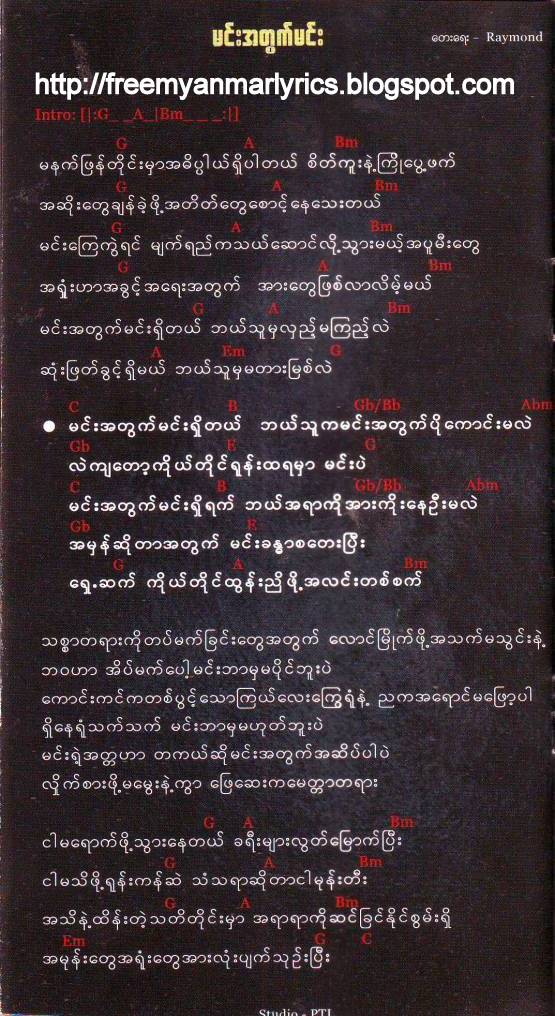 မင်းအတွက်မင်း
တေးရေး - Raymond
http://freemyanmarlyrics.blogspot.com
Intro: [|:G_ _A_|Bm_ _ _:|]
G A Bm
မနက်ဖြန်တိုင်းမှာအဓိပ္ပါယ်ရှိပါတယ် စိတ်ကူးနဲ့ကြိုပွေ့ဖက်
G A Bm
အဆိုးတွေချန်ခဲ့ဖို့အတိတ်တွေစောင့်နေသေးတယ်
G A Bm
မင်းကြေကွဲရင် မျက်ရည်ကသယ်ဆောင်လို့သွားမယ့်အပူမီးတွေ
G A Bm
အရှုံးဟာအခွင့်အရေးအတွက် အားတွေဖြစ်လာလိမ့်မယ်
G A Bm
မင်းအတွက်မင်းရှိတယ် ဘယ်သူမှလှည့်မကြည့်လဲ
A Em G
ဆုံးဖြတ်ခွင့်ရှိမယ် ဘယ်သူမှမတားမြစ်လဲ
C B Gb/Bb Abm
● မင်းအတွက်မင်းရှိတယ် ဘယ်သူကမင်းအတွက်ပိုကောင်းမလဲ
Gb E G
လဲကျတော့ကိုယ်တိုင်ရုန်းထရမှာ မင်းပဲ
C B Gb/Bb Abm
မင်းအတွက်မင်းရှိရက် ဘယ်အရာကိုအားကိုးနေဦးမလဲ
Gb E
အမှန်ဆိုတာအတွက် မင်းခန္ဓာစတေးပြီး
G A Bm
ရှေ့ဆက် ကိုယ်တိုင်ထွန်းညှိဖို့အလင်းတစ်စက်
သစ္စာတရားကိုတပ်မက်ခြင်းတွေအတွက် လောင်မြိုက်ဖို့အသက်မသွင်းနဲ့
ဘဝဟာ အိပ်မက်ပေါ့မင်းဘာမှမပိုင်ဘူးပဲ
ကောင်းကင်ကတစ်ပွင့်သောကြယ်လေးကြွေရုံနဲ့ ညကအရောင်မဖြော့ပါ
ရှိနေရုံသက်သက် မင်းဘာမှမဟုတ်ဘူးပဲ
မင်းရဲ့အတ္တဟာ တကယ်ဆိုမင်းအတွက်အဆိပ်ပါပဲ
လှိုက်စားဖို့မမွေးနဲ့ကွာ ဖြေဆေးကမေတ္တာတရား
G A Bm
ငါမရောက်ဖို့သွားနေတယ် ခရီးများလွတ်မြောက်ပြီး
G A Bm
ငါမသိဖို့ရုန်းကန်ဆဲ သံသရာဆိုတာငါမုန်းတီး
G A Bm
အသိနဲ့ထိန်းတဲ့သတိတိုင်းမှာ အရာရာကိုဆင်ခြင်နိုင်စွမ်းရှိ
Em G C
အမုန်းတွေအရှုံးတွေအားလုံးပျက်သုဉ်းပြီး
Studio - PTL